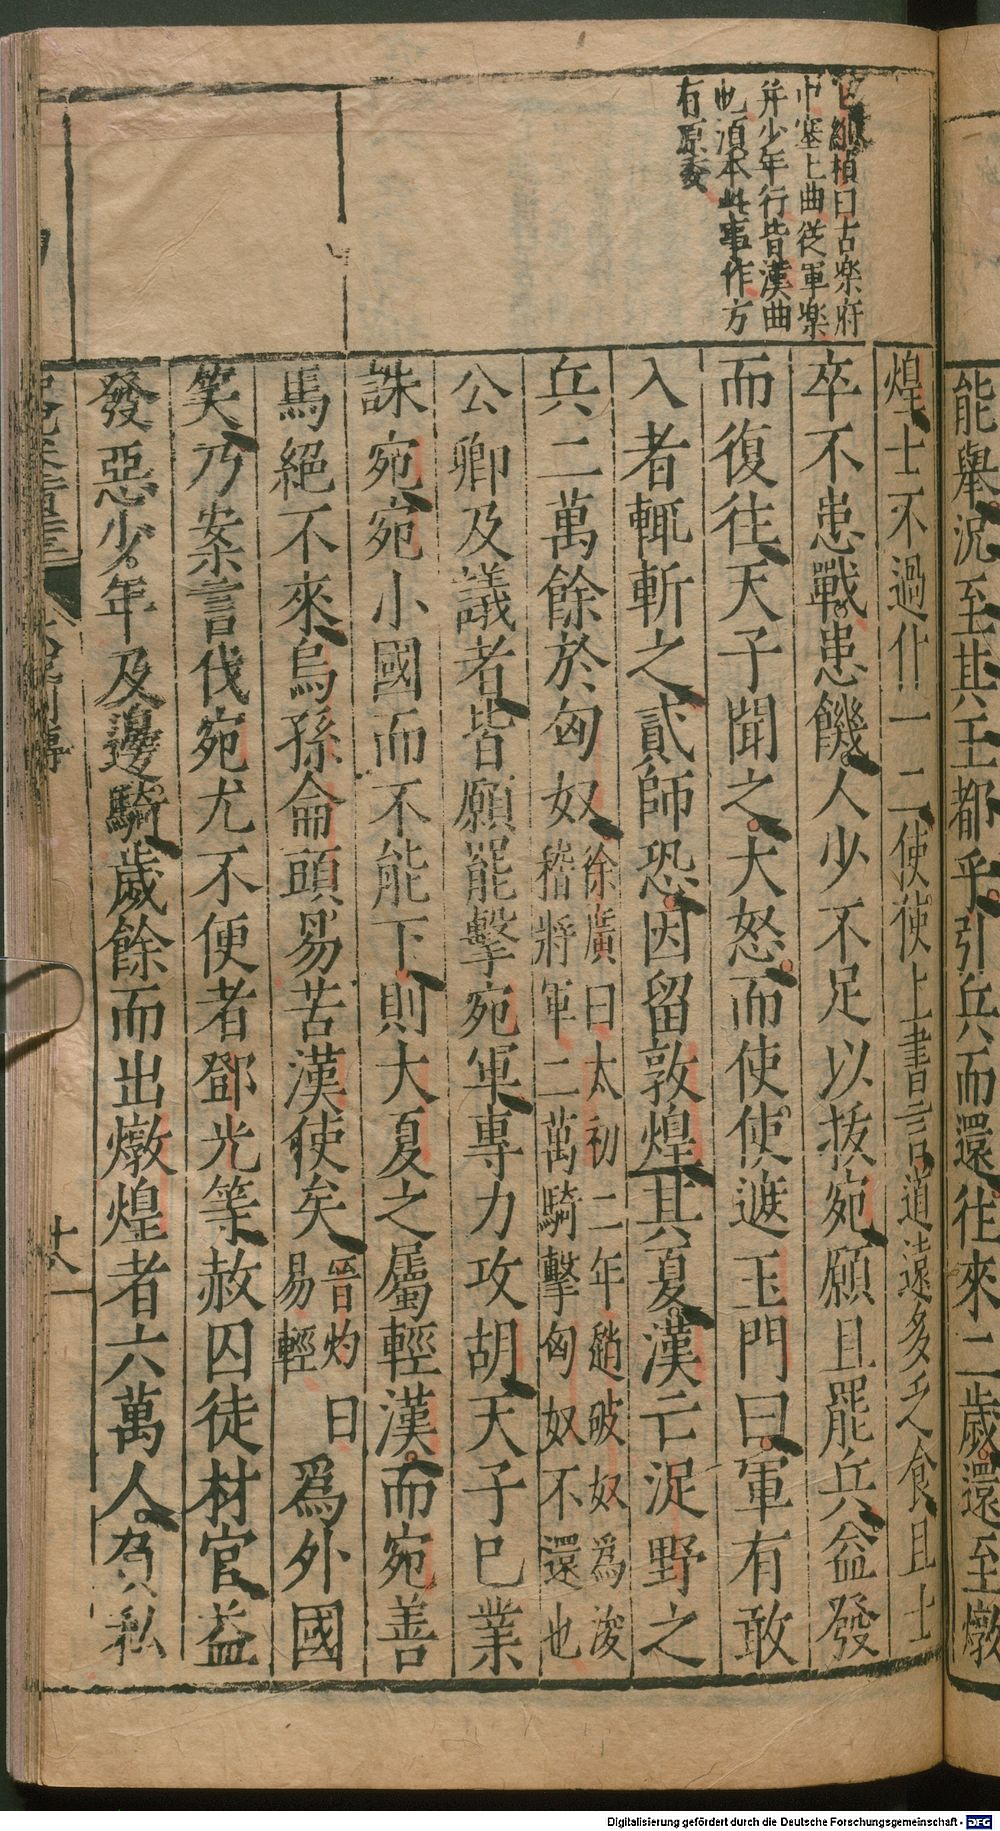 能舉況至其王都乎引兵而還往來二歲還至燉
維楨曰古楽府
中塞上曲従軍楽
并少年行皆漢曲
也須本此事作方
有原委
煌士不過什一二使使上書言道遠多乏食且士
卒不患戰患饑人少不足以拔宛願且罷兵益發
而復往天子聞之大怒而使使遮玉門曰軍有敢
入者輒斬之貳師恐因留敦煌其夏漢亡浞野之
兵二萬餘於匈奴徐廣曰太初二年趙破奴爲浚稽將軍二萬騎擊匈奴不還也
公卿及議者皆願罷擊宛軍專力攻胡天子已業
誅宛宛小國而不能下則大夏之屬輕漢而宛善
馬絕不來烏孫侖頭易苦漢使矣晉灼曰易輕爲外國
笑乃案言伐宛尤不便者鄧光等赦囚徒材官益
發惡少年及邊騎歲餘而出燉煌者六萬人負私
Digitalisierung gefördert durch die Deutsche Forschungsgemeinschaft - DFG